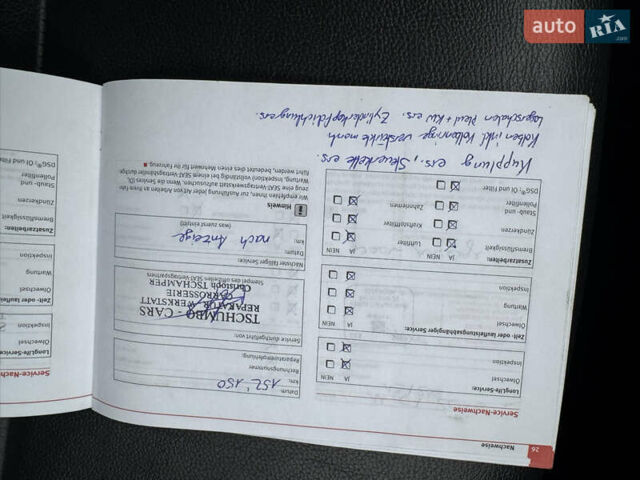 auto RIA.com
26
Nachweise
Service-Nachweise
LongLife-Service:
JA NEIN
Ölwechsel
Inspektion
Zeit- oder laufleistungsabhängiger Service:
JA NEIN
Ölwechsel
Wartung
Inspektion
Zusatzarbeiten:
JA NEIN
Bremsflüssigkeit
Luftfilter
Zündkerzen
Kraftstofffilter
Staub- und
Pollenfilter
Zahnriemen
DSG®-Öl und Filter
Datum:
km: 152'150
Rechnungsnummer:
Reparaturempfehlung:
Service durchgeführt von:
TSCHUMBO - CARS
REPARATURWERKSTATT
CARROSSERIE
Christoph TSCHAMPER
Stempel des offiziellen SEAT-Vertragspartners
Nächster fälliger Service:
Datum:
nach Anzeige
km:
(was zuerst eintritt)
Hinweis
Wir empfehlen Ihnen, zur Ausführung jeder Art von Arbeiten an Ihrem Fahr-
zeug eine SEAT-Vertragswerkstatt aufzusuchen. Wenn die Services (Öl,
Wartung, Inspektion) vollständig bei einem SEAT-Vertragshändler durchge-
führt werden, bedeutet dies einen Mehrwert für Ihr Fahrzeug.
Kupplung ers., Steuerkette ers.
Kolben inkl Kolbenringe verstärkte mont
Lagerschalen Pleul + KW ers. Zylinderkopfdichtung ers.
Service-Nach
LongLife-Service
Ölwechsel
Inspektion
Zeit- oder laufleist
Ölwechsel
Wartung
Inspektion
Zusatzarbeiten:
Bremsflüssigkeit
Zündkerzen
Staub- und
Pollenfilter
DSG®-Öl und Filter